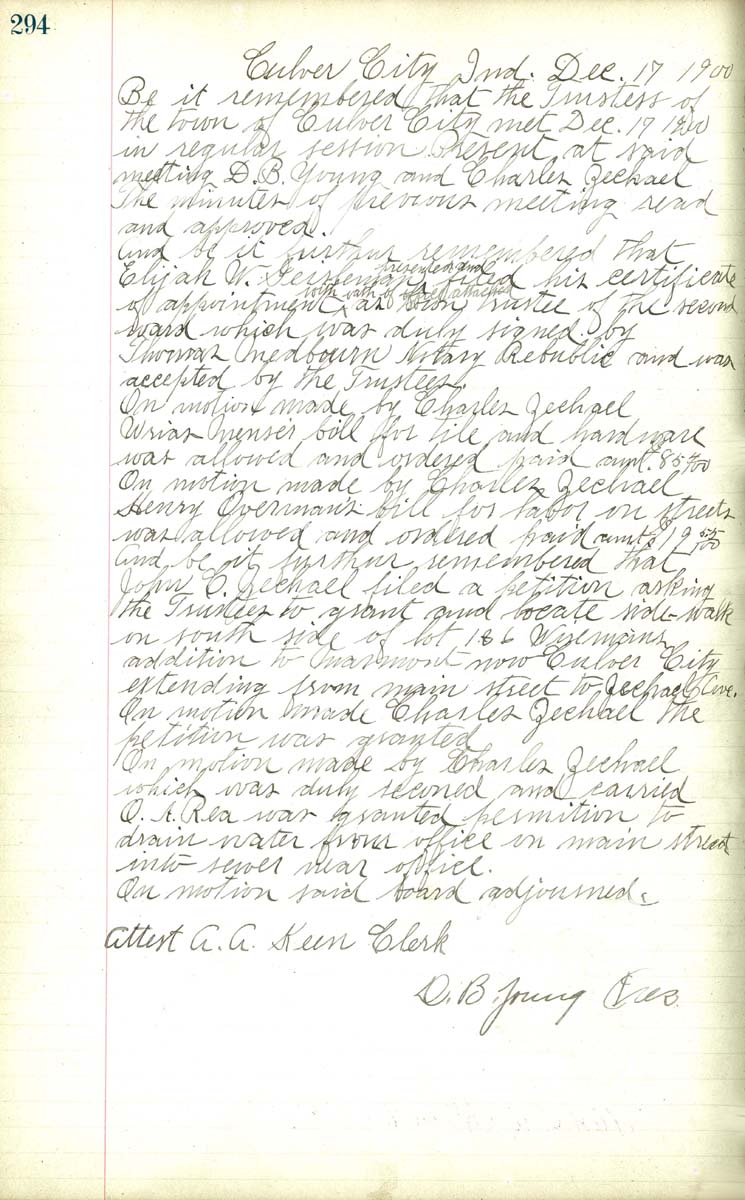 294
Culver City Ind. Dec. 17 1900
Be it remembered that the Trustess of
the town of Culver City met Dec. 17 1900
in regular session. Present at said
meeting D. B. Young and Charles Zechael
The minutes of previous meeting read
and approved.
And be it further remembered that
presented and
Elijah W. filed his certificate
with oath of office attached
of appointment as town trustee of the second
ward which was duly signed by
Thomas Medbourn Notary Republic and was
accepted by the Trustees.
On motion made by Charles Zechael
Urias Menser bill for tile and hardware
was allowed and ordered paid amt.
On motion made by Charles Zechael
Henry Overmans bill for labor on streets
was allowed and ordered paid amt. $19 55/100
And be it furthur remembered that
John C. Zechael filed a petition asking
the Trustees to grant and locate side-walk
on south side of lot 186 Wisemans
addition to Marmont now Culver City
extending from main street to Zechael Ave.
On motion made Charles Zechael the
petition was granted
On motion made by Charles Zechael
which was duly seconed and carried
O. A. Rea was granted permition to
drain water from office on main street
into sewer near office.
On motion said board adjourned.
Attest A. A. Keen Clerk
D. B. Young Pres.